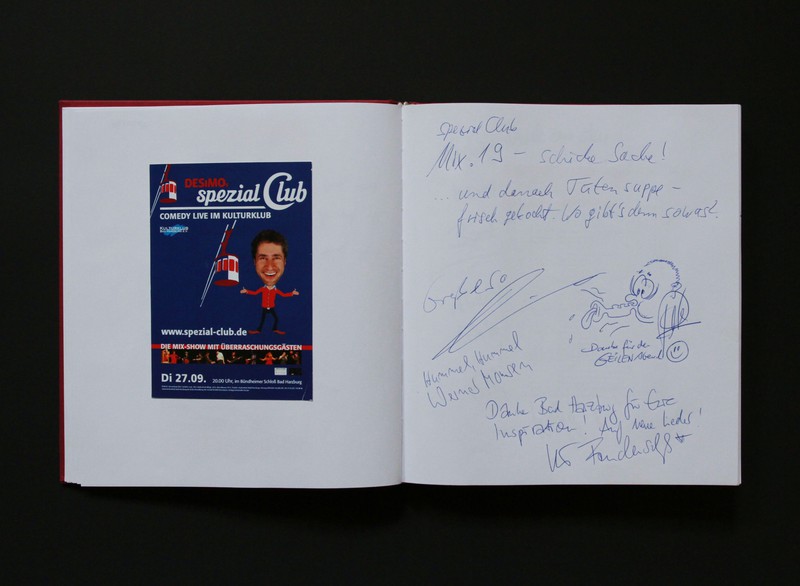 DESiMO,s
spezial Club
COMEDY LIVE IM KULTURKLUB
KULTURKLUB
www.spezial-club.de
DIE MIX-SHOW MIT ÜBERRASCHUNGSGÄSTEN
Di 27.09. 20.00 Uhr, im Bündheimer Schloß Bad Harzburg
spezial Club
Mix. 19 – schicke Sache!
... und danach Tütensuppe –
frisch gekocht. Wo gibt's denn sowas?
Danke für den
GEILEN Abend
Hummel Hummel
Werner Momsen
Danke Bad Harzburg für Eure
Inspiration! Auf neue Lieder!